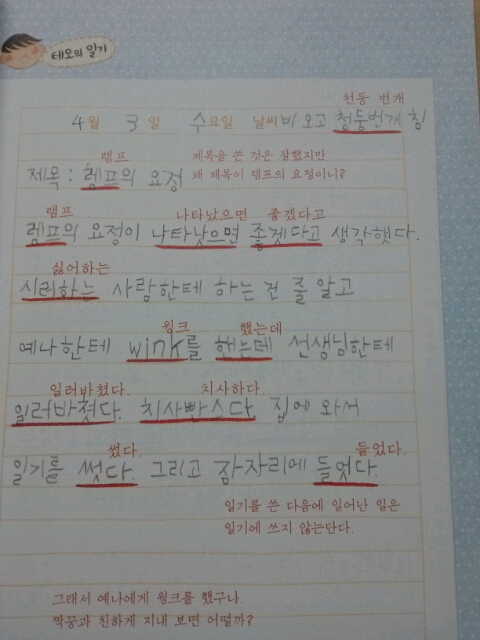 테오의 일기
천둥 번개
4월 3일 수요일 날씨 비 오고 청둥번개 침
램프
제목을 쓴 것은 잘했지만
제목: 렘프의 요정
왜 제목이 램프의 요정이니?
램프 나타났으면 좋겠다고
렘프의 요정이 나타낫으면 좋겟다고 생각햇다.
싫어하는
시러하는 사람한테 하는 건 줄 알고
윙크 했는데
예나한테 wink를 햇는데 선생님한테
일러바쳤다. 치사하다.
일러바쳣다. 치사빤스다. 집에 와서
썼다. 들었다.
일기를 썻다. 그리고 잠자리에 들엇다.
일기를 쓴 다음에 일어난 일은
일기에 쓰지 않는단다.
그래서 예나에게 윙크를 했구나.
짝꿍과 친하게 지내 보면 어떨까?